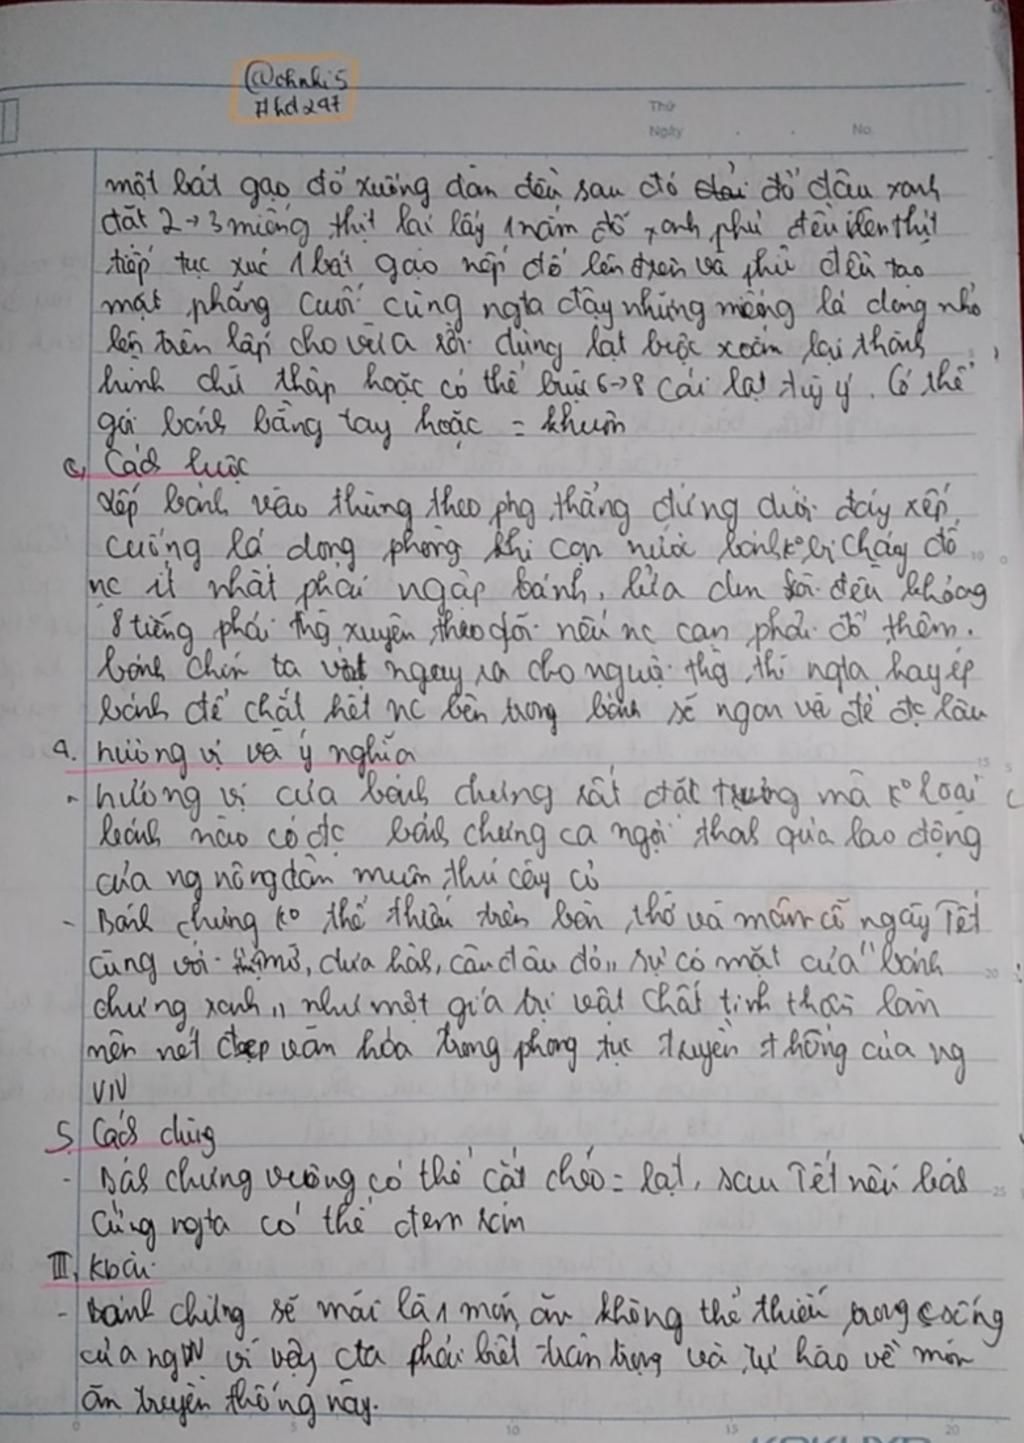 @chnhi5
#hd297
Thứ
Ngày . . No.
một bát gạo đổ xuống dàn đều sau đó đổ đậu xanh
đặt 2→3 miếng thịt lại lấy 1 nắm đỗ xanh phủ đều lên thịt
tiếp tục xúc 1 bát gạo nếp đổ lên trên và phủ đều tạo
mặt phẳng cuối cùng ngta đậy những miếng lá dong nhỏ
lên trên lấp cho vừa rồi dùng lạt buộc xoắn lại thành
hình chữ thập hoặc có thể buộc 6→8 cái lạt tuỳ ý. Có thể
gói bánh bằng tay hoặc = khuôn
c, Cách luộc
Xếp bánh vào thùng theo phg thẳng đứng dưới đáy xếp
cuống lá dong phòng khi cạn nước bánh k° bị cháy đổ
nc ít nhất phải ngập bánh, lửa đun sôi đều khoảng
8 tiếng phải thg xuyên theo dõi nếu nc cạn phải đổ thêm.
bánh chín ta vớt ngay ra cho nguội thg thì ngta hay ép
bánh để chắt hết nc bên trong bánh sẽ ngon và để đc lâu
4. hương vị và ý nghĩa
- hương vị của bánh chưng rất đặt trưng mà k° loại
bánh nào có đc bánh chưng ca ngợi thành quả lao động
của ng nông dân muôn thú cây cỏ
- Bánh chưng k° thể thiếu trên bàn thờ và mâm cỗ ngày Tết
cùng với thịt mỡ, dưa hành, câu đối đỏ,, sự có mặt của "bánh
chưng xanh,, như một giá trị vật chất tinh thần làm
nên nét đẹp văn hóa trong phong tục truyền thống của ng
VN
5. Cách dùng
- Bánh chưng vuông có thể cắt chéo = lạt, sau Tết nếu bánh
cứng ngta có thể đem rán
III, Kbài
- Bánh chưng sẽ mãi là 1 món ăn không thể thiếu trong csống
của ng VN vì vậy cta phải biết trân trọng và tự hào về món
ăn truyền thống này.